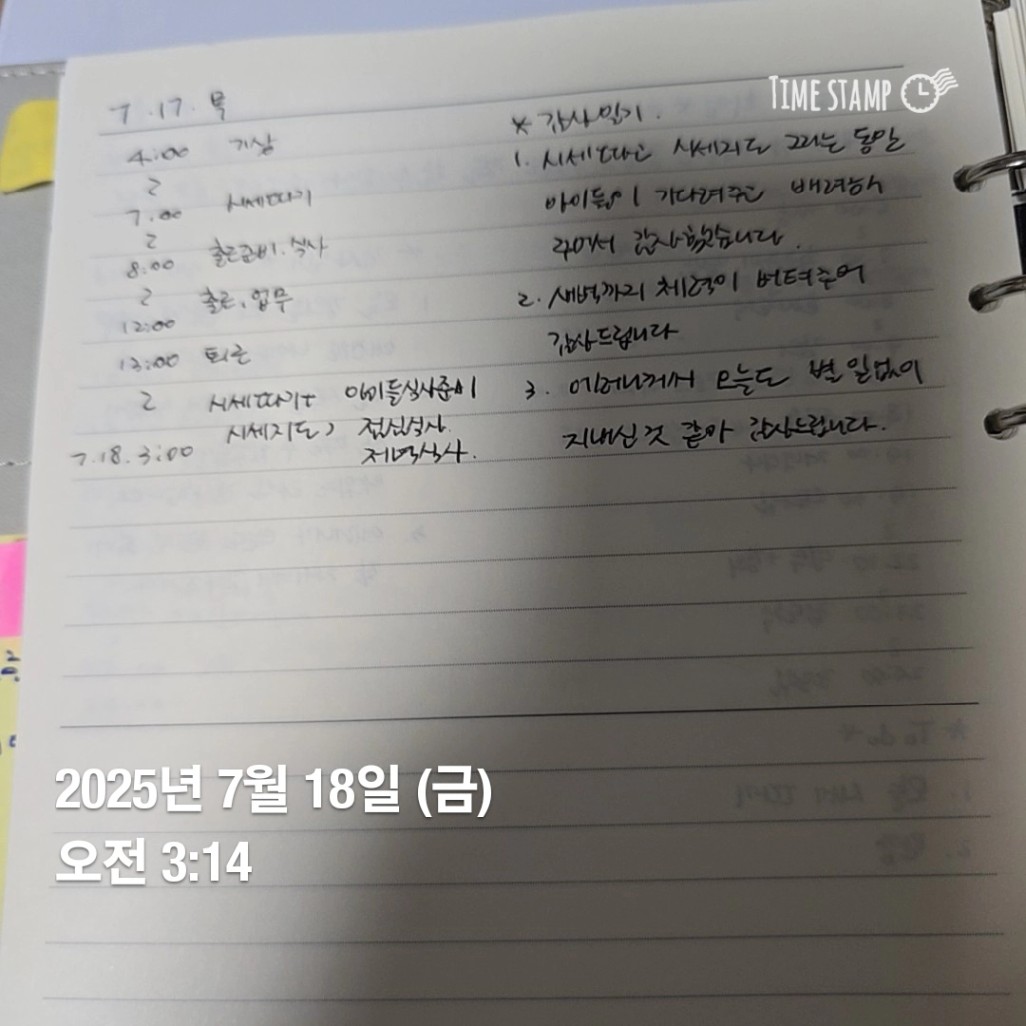 TIME STAMP
7.17. 목
4:00 기상
~
7:00 시세따기
~
8:00 출근준비. 식사
~ 출근, 업무
12:00
13:00 퇴근
~ 시세따기+ 아이들식사준비
시세지도) 점심식사.
7.18. 3:00 저녁식사.
* 감사일기.
1. 시세따고 시세지도 그리는 동안
아이들이 기다려주고 배려해
주어서 감사했습니다.
2. 새벽까지 체력이 버텨주어
감사드립니다
3. 어머니께서 오늘도 별 일없이
지내신것 같아 감사드립니다.
2025년 7월 18일 (금)
오전 3:14